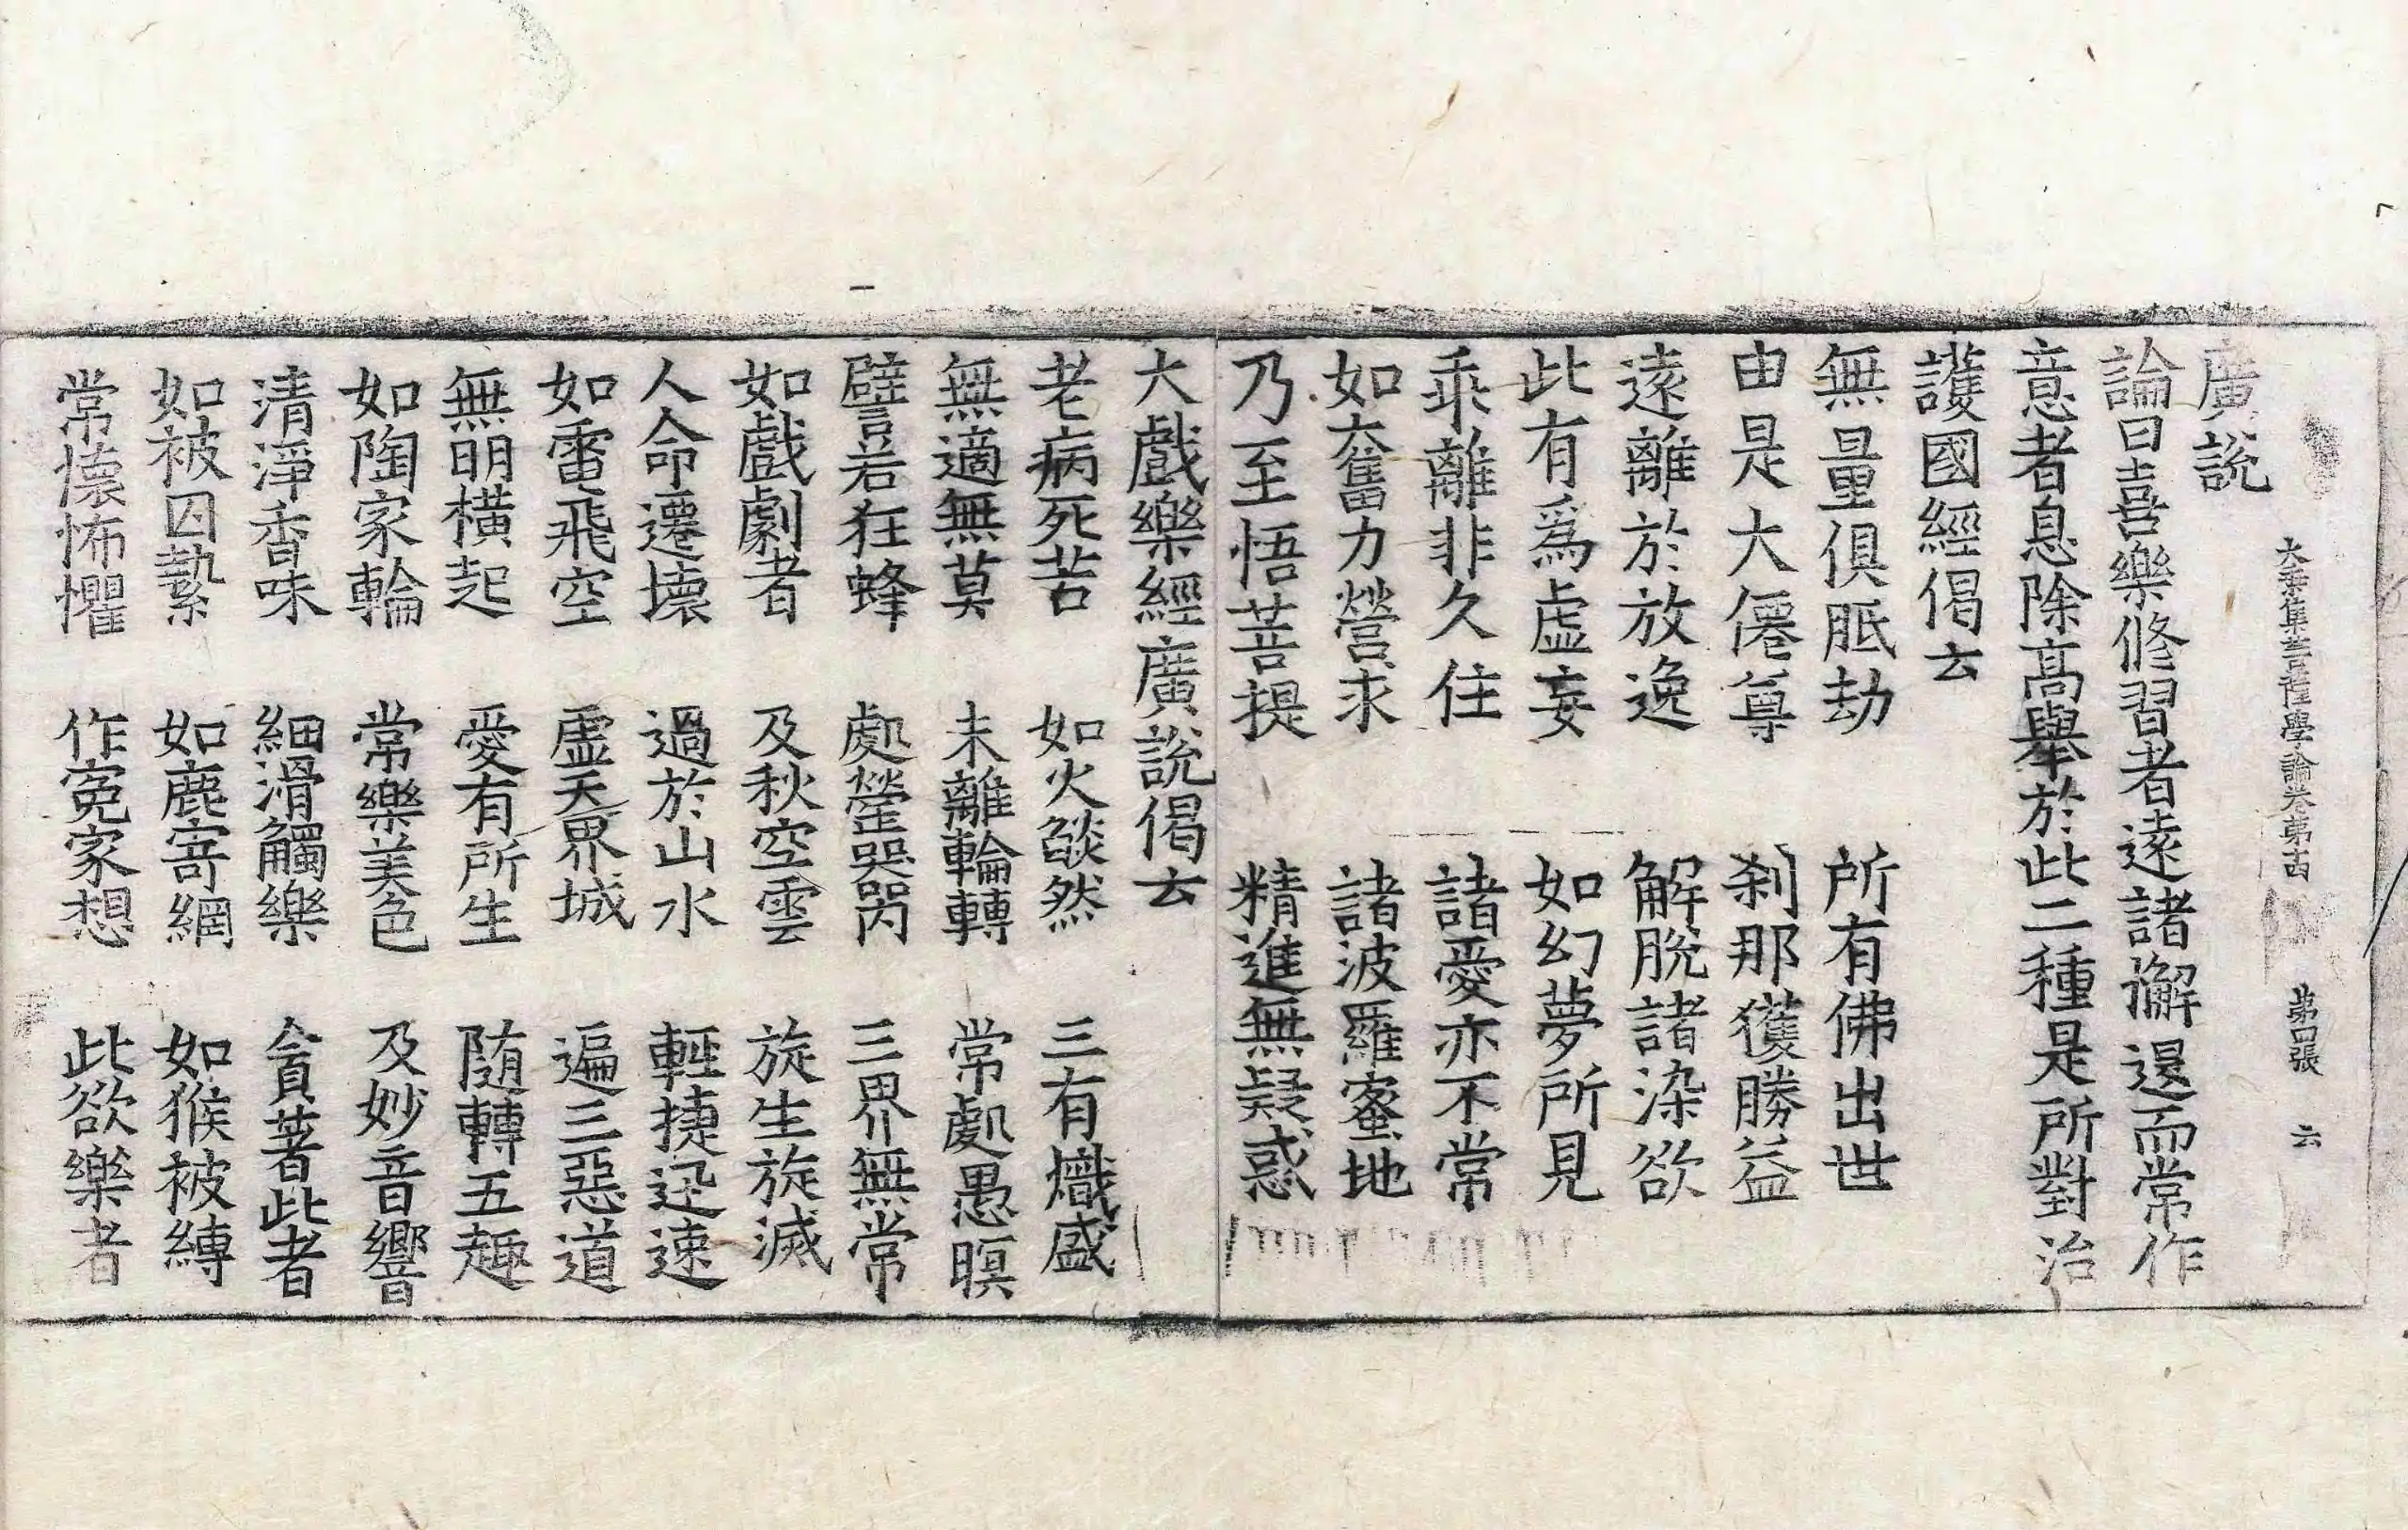 廣說
大乘集菩薩學論卷第十四 第四張 云
論曰喜樂修習者遠諸懈退而常作
意者息除高舉於此二種是所對治
護國經偈云
無量俱胝劫 所有佛出世
由是大僊尊 刹那獲勝益
遠離於放逸 解脫諸染欲
此有爲虛妄 如幻夢所見
乖離非久住 諸愛亦不常
如奮力營求 諸波羅蜜地
乃至悟菩提 精進無疑惑
大戲樂經廣說偈云
老病死苦 如火燄然 三有熾盛
無適無莫 未離輪轉 常處愚暝
譬若狂蜂 處塋哭㖞 三界無常
如戲劇者 及秋空雲 旋生旋滅
人命遷壞 過於山水 輕捷迅速
如雷飛空 虛天界城 遍三惡道
無明橫起 愛有所生 随轉五趣
如陶家輪 常樂美色 及妙音響
清淨香味 細滑觸樂 貪著此者
如被囚縶 如鹿寄網 如猴被縛
常懷怖懼 作寃家想 此欲樂者